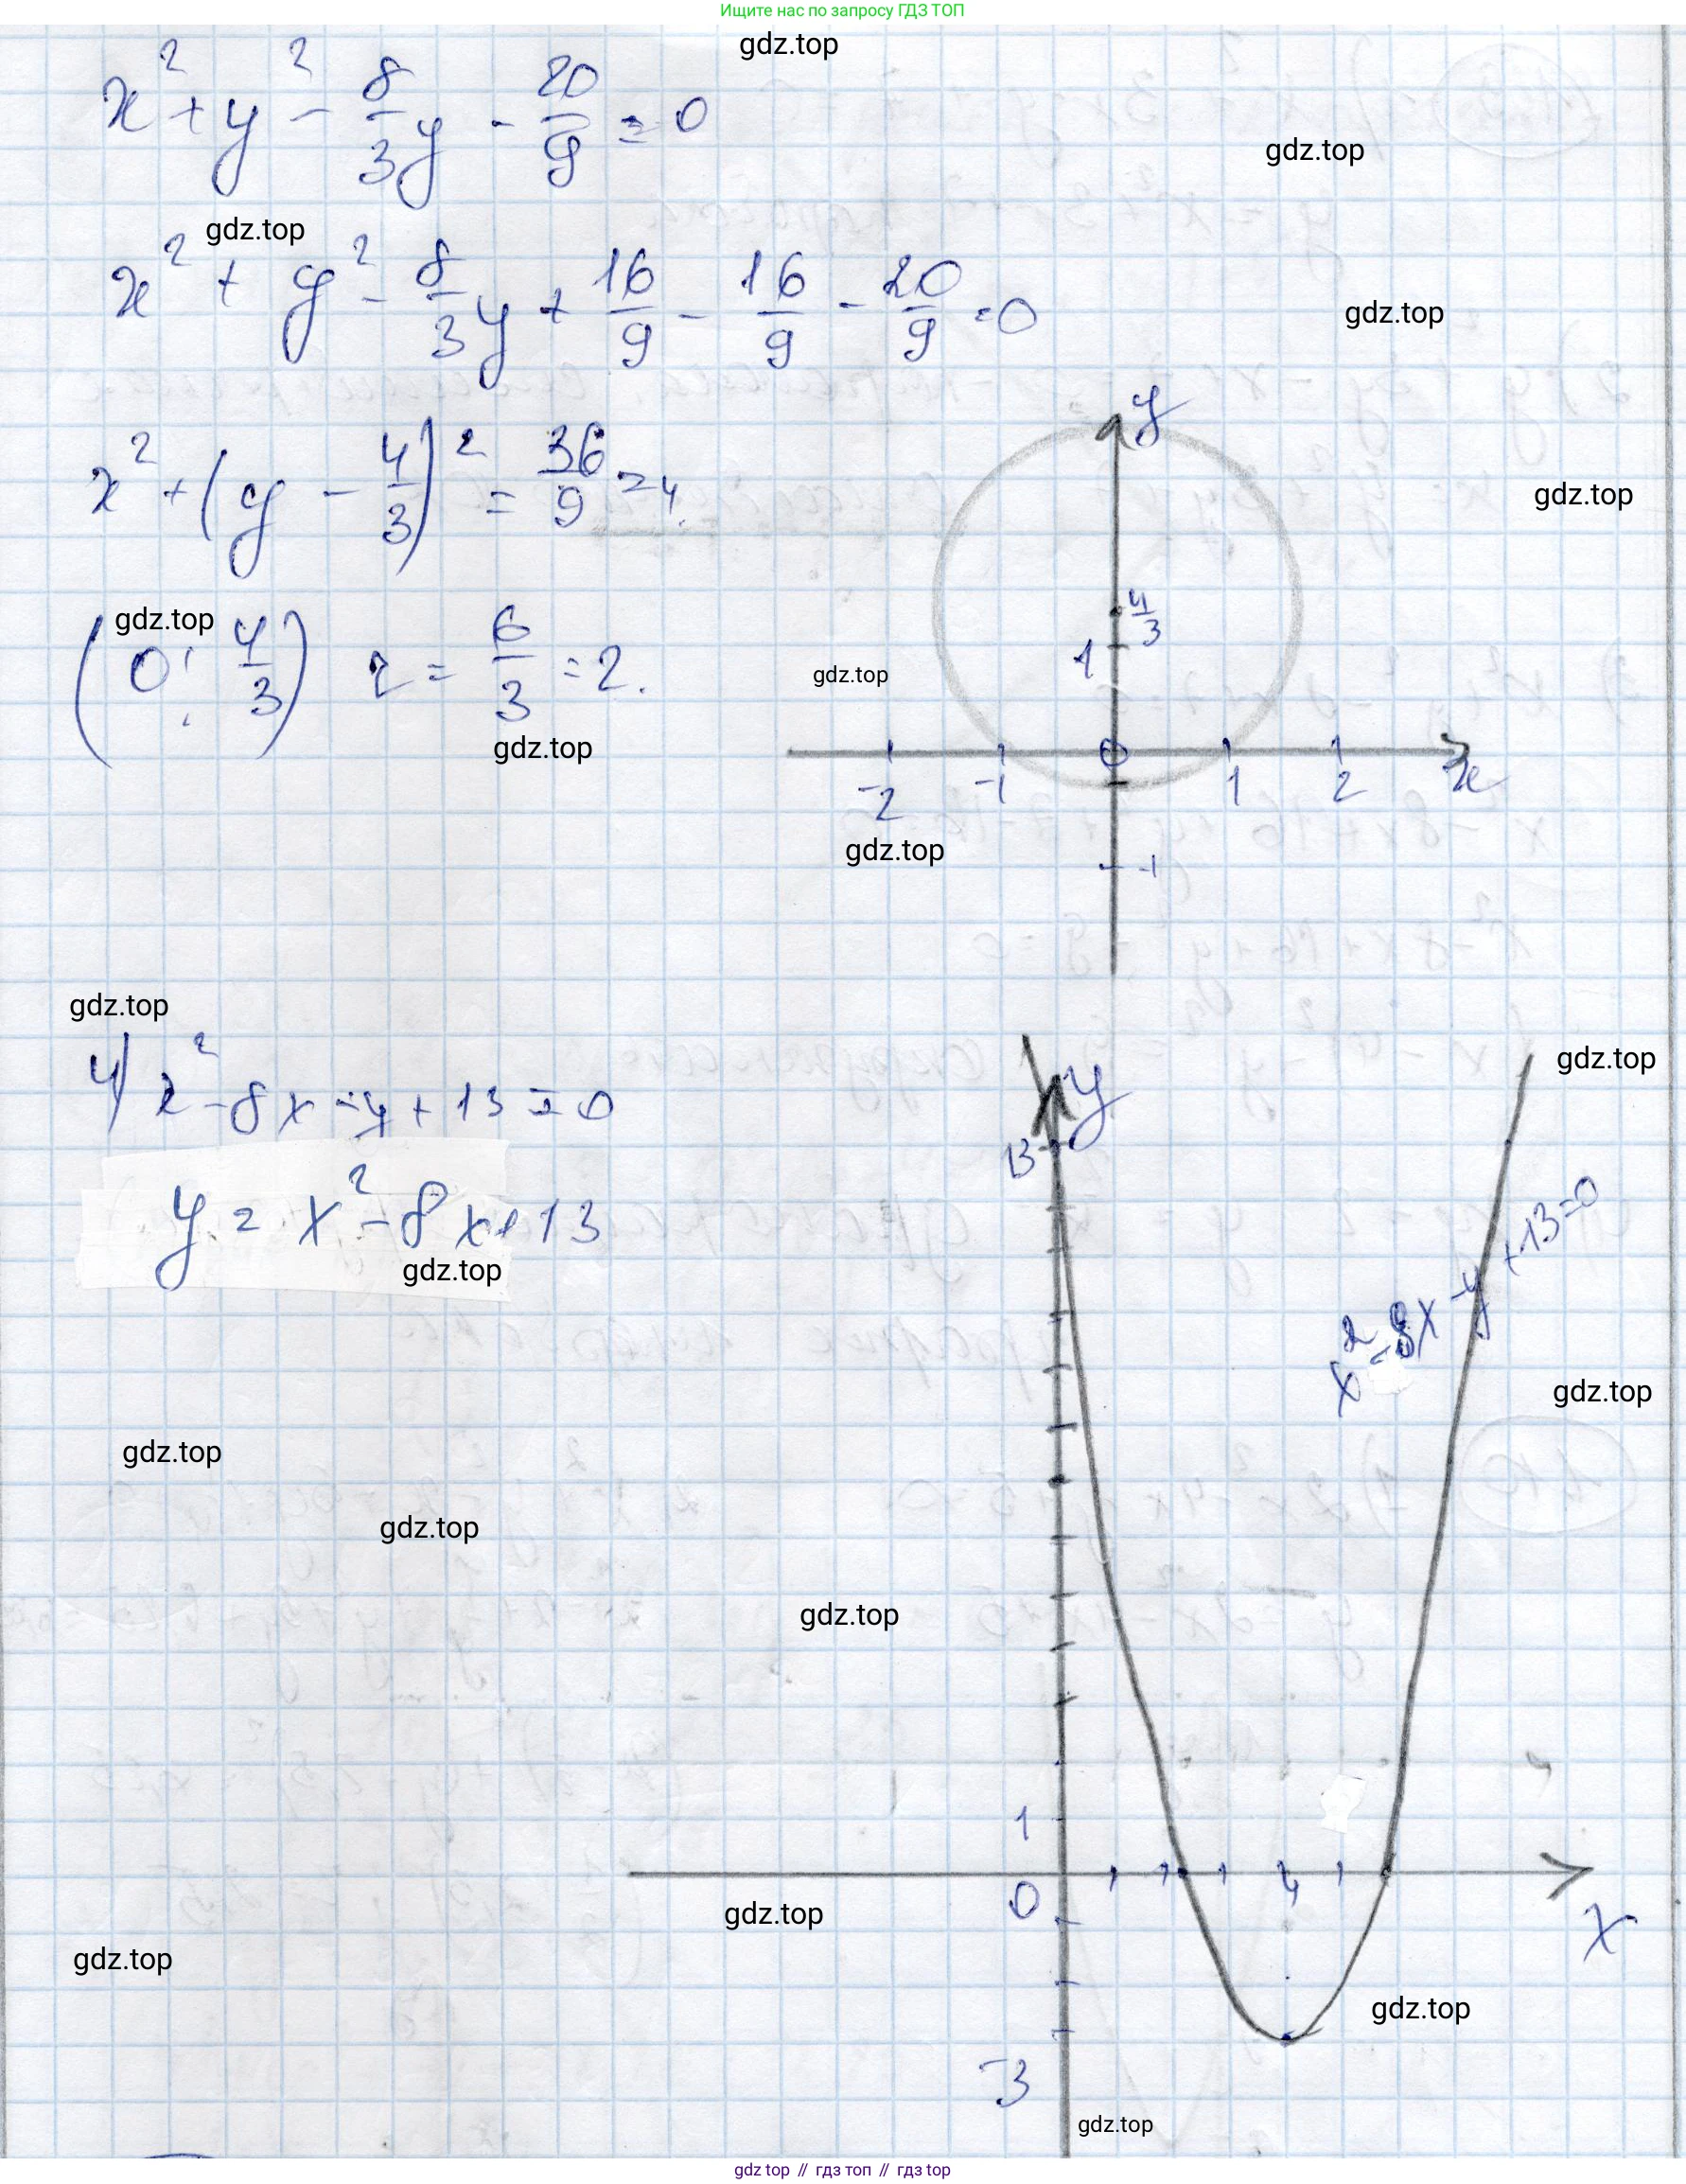 Ищите нас по запросу ГДЗ ТОП
gdz.top
x² + y² - 8/3 y - 20/9 = 0
gdz.top
gdz.top
x² + y² - 8/3 y + 16/9 - 16/9 - 20/9 = 0
gdz.top
y
x² + (y - 4/3)² = 36/9 = 4.
gdz.top
4/3
1
gdz.top
(0; 4/3) r = 6/3 = 2.
gdz.top
gdz.top
-2 -1 0 1 2 x
gdz.top
-1
gdz.top
4) x² - 8x - y + 13 = 0
y
gdz.top
13
y = x² - 8x + 13
gdz.top
x² - 8x - y + 13 = 0
gdz.top
gdz.top
gdz.top
gdz.top
1
0 4 x
gdz.top
gdz.top
gdz.top
-3
gdz.top
gdz top // гдз топ // гдз top